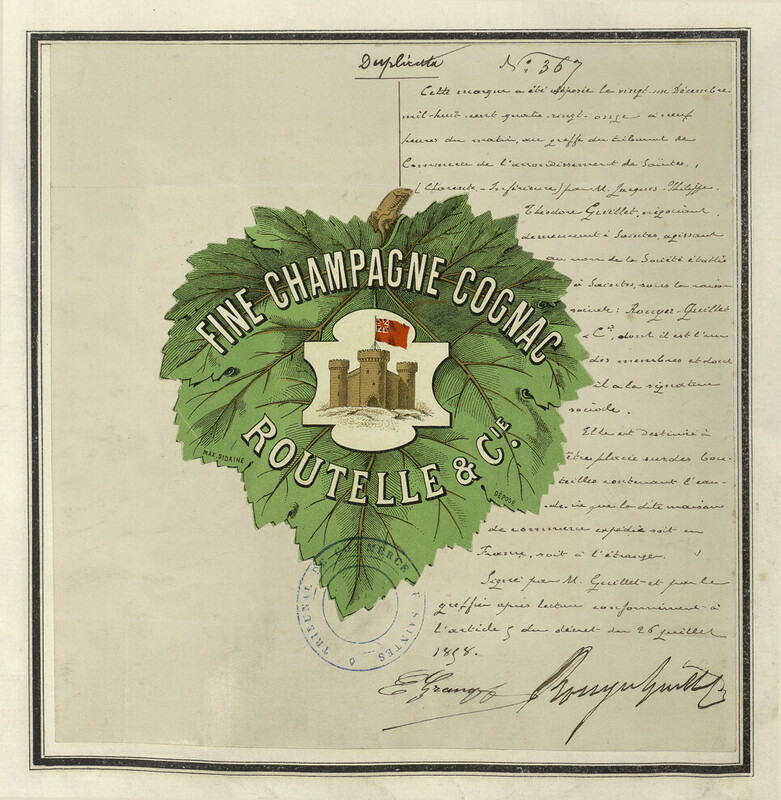 Duplicata
N° 367
Cette marque a été déposée le vingt-un Décembre
mil-huit cent quatre-vingt-onze à neuf
heures du matin, au greffe du tribunal de
Commerce de l'arrondissement de Saintes,
(Charente-Inférieure) par M. Jacques-Philippe
Théodore Guillet, négociant,
demeurant à Saintes, agissant
au nom de la Société établie
à Saintes, sous la raison
sociale: Rouyer-Guillet
& Cie, dont il est l'un
des membres et dont
il a la signature
sociale.
Elle est destinée à
être placée sur des bou-
teilles contenant l'eau-
de-vie que la dite maison
de commerce expédie soit en
France, soit à l'étranger.
Signé par M. Guillet et par le
greffier après lecture conformément à
l'article 5 du décret du 26 juillet
1858.
FINE CHAMPAGNE COGNAC
ROUTELLE & CIE.
MAX. SIDAINE
DÉPOSÉ
TRIBUNAL DE COMMERCE DE SAINTES
Rouyer Guillet